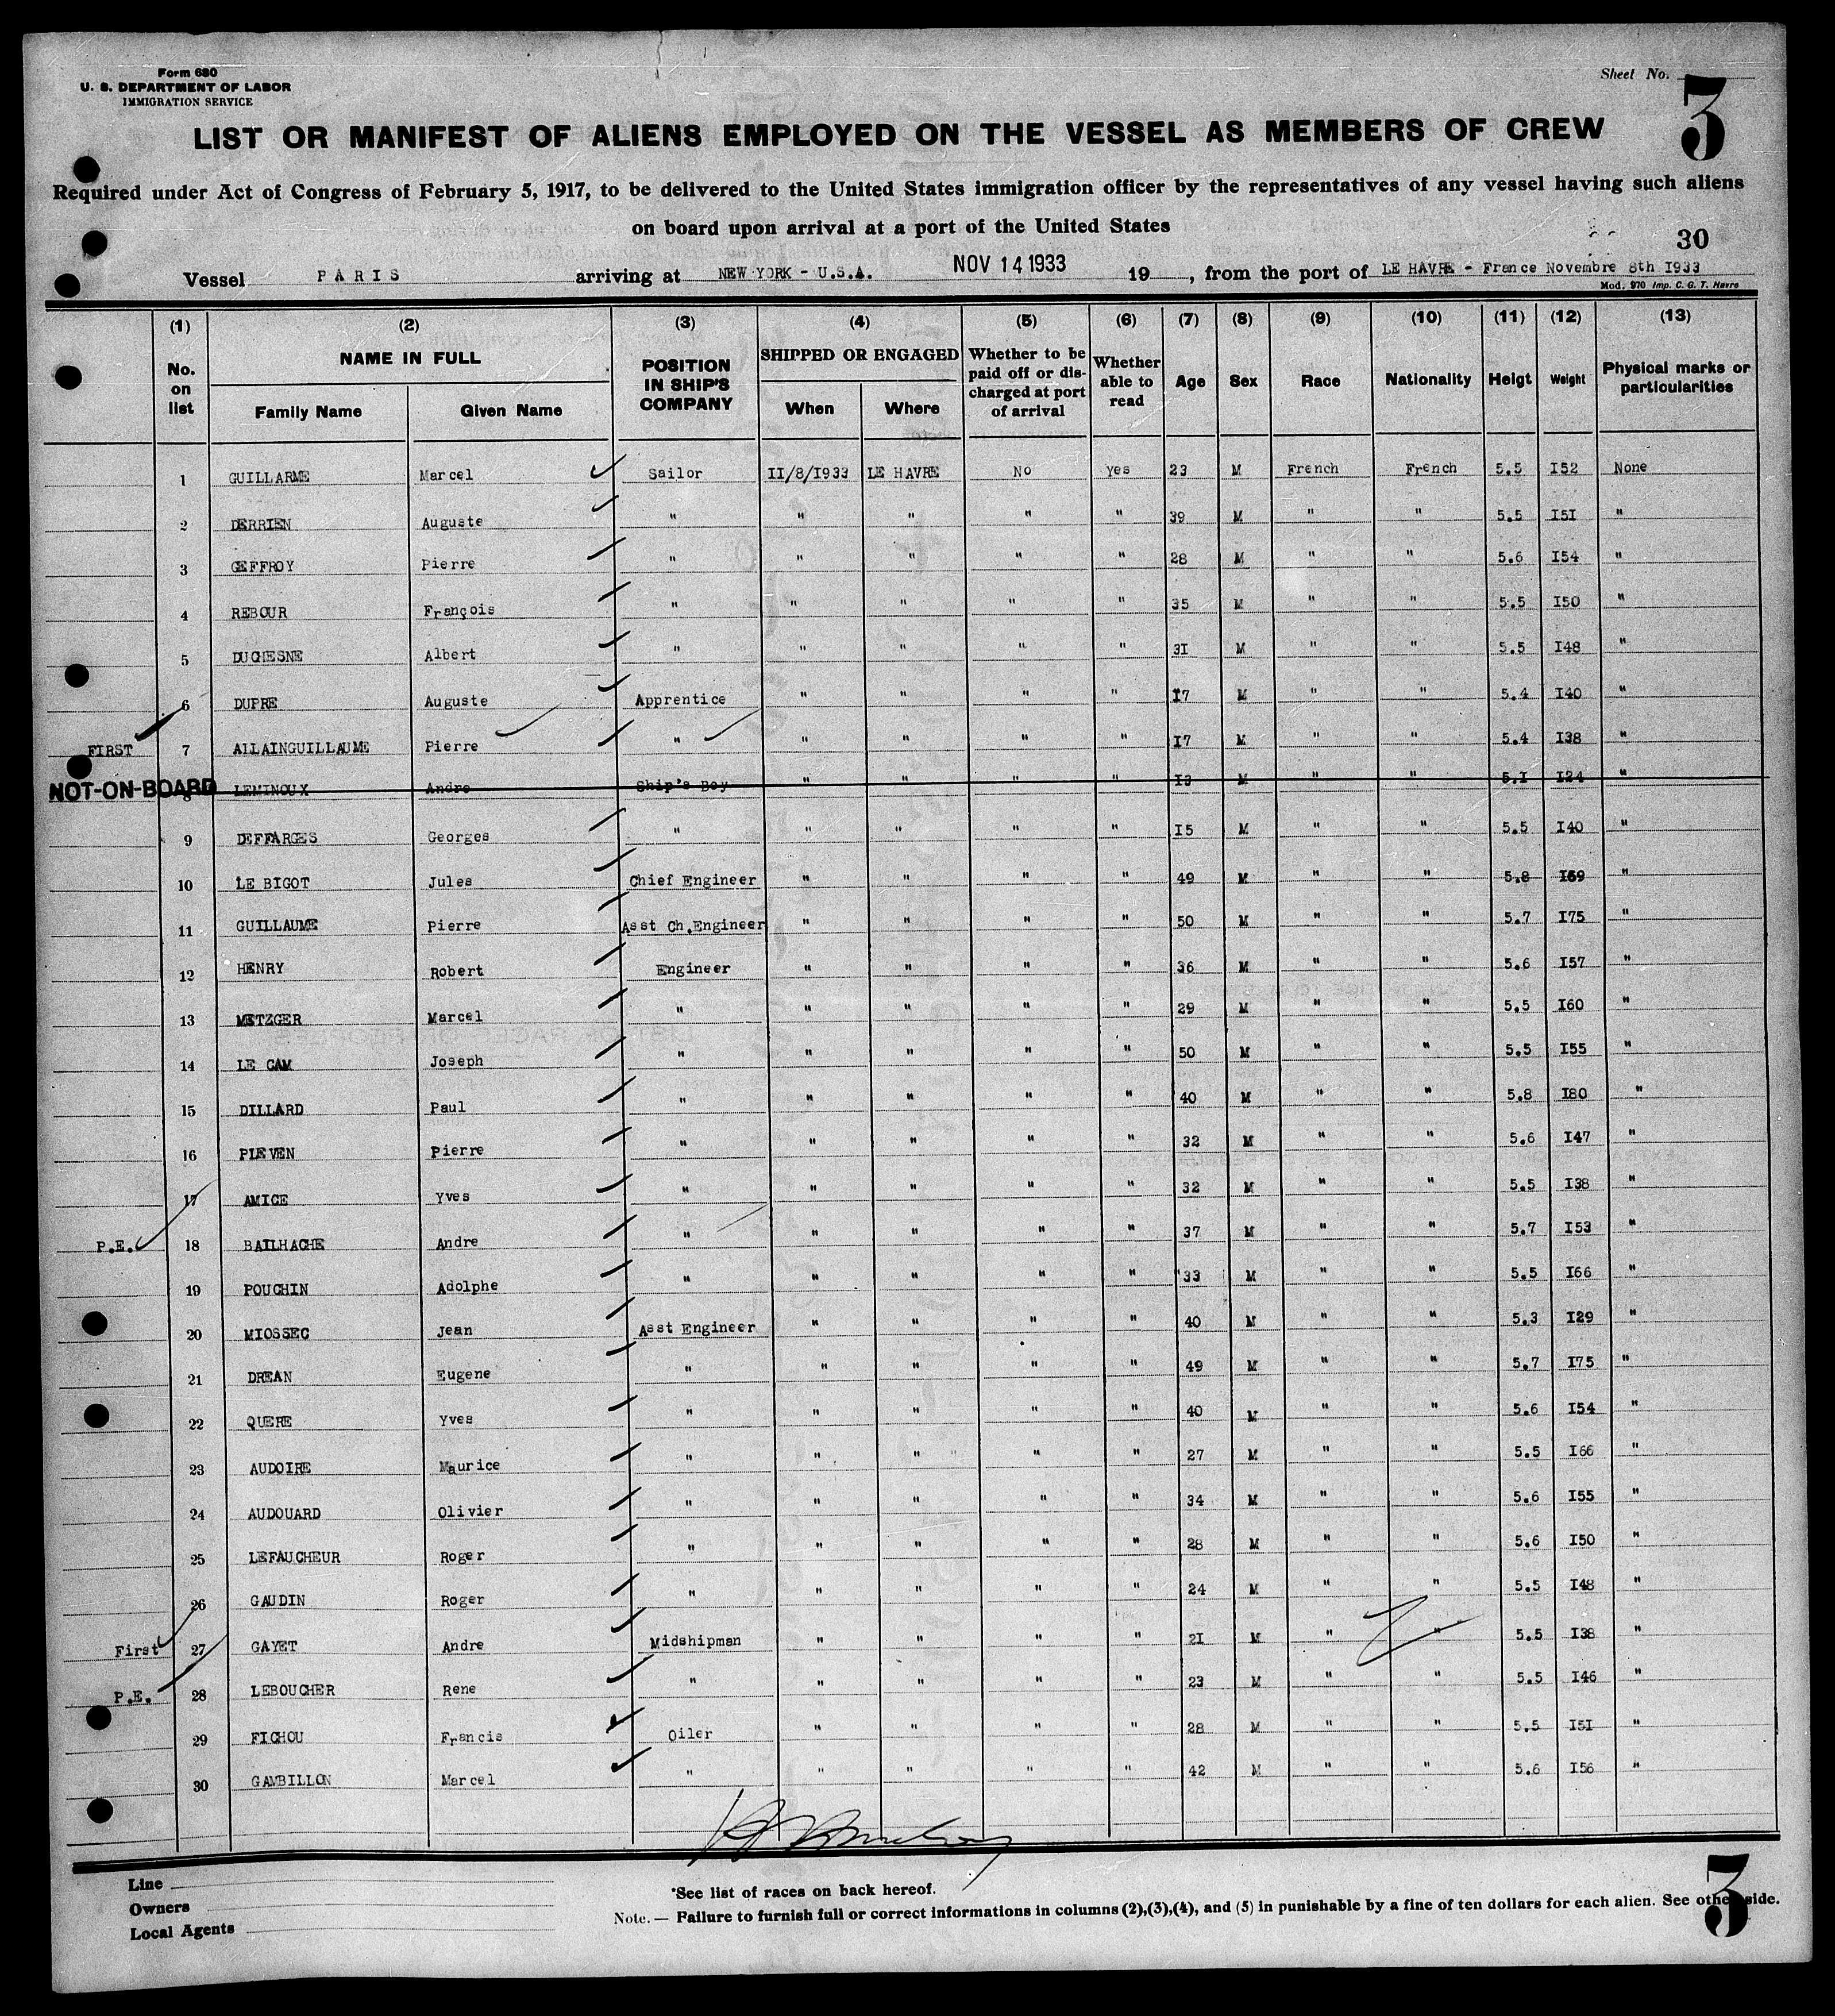 Form 680
U. S. DEPARTMENT OF LABOR
IMMIGRATION SERVICE
Sheet No. 3
LIST OR MANIFEST OF ALIENS EMPLOYED ON THE VESSEL AS MEMBERS OF CREW
Required under Act of Congress of February 5, 1917, to be delivered to the United States immigration officer by the representatives of any vessel having such aliens
on board upon arrival at a port of the United States
30
Vessel PARIS arriving at NEW YORK - U.S.A. NOV 14 1933 19 , from the port of LE HAVRE - France Novembre 8th I933
Mod. 970 Imp. C. G. T. Havre
(1) (2) (3) (4) (5) (6) (7) (8) (9) (10) (11) (12) (13)
No. on list NAME IN FULL Family Name Given Name POSITION IN SHIP'S COMPANY SHIPPED OR ENGAGED When Where Whether to be paid off or discharged at port of arrival Whether able to read Age Sex Race Nationality Heigt Weight Physical marks or particularities
1 GUILLARME Marcel Sailor II/8/I933 LE HAVRE No yes 23 M French French 5.5 I52 None
2 DERRIEN Auguste " " " " " 39 M " " 5.5 I5I "
3 GEFFROY Pierre " " " " " 28 M " " 5.6 I54 "
4 REBOUR François " " " " " 35 M " " 5.5 I50 "
5 DUCHESNE Albert " " " " " 3I M " " 5.5 I48 "
6 DUPRE Auguste Apprentice " " " " I7 M " " 5.4 I40 "
FIRST 7 ALLAINGUILLAUME Pierre " " " " " I7 M " " 5.4 I38 "
NOT-ON-BOARD 8 LEMINOUX Andre Ship's Boy " " " " I3 M " " 5.I I24 "
9 DEFFARGES Georges " " " " " I5 M " " 5.5 I40 "
10 LE BIGOT Jules Chief Engineer " " " " 49 M " " 5.8 I69 "
11 GUILLAUME Pierre Asst Ch.Engineer " " " " 50 M " " 5.7 I75 "
12 HENRY Robert Engineer " " " " 36 M " " 5.6 I57 "
13 METZGER Marcel " " " " " 29 M " " 5.5 I60 "
14 LE CAM Joseph " " " " " 50 M " " 5.5 I55 "
15 DILLARD Paul " " " " " 40 M " " 5.8 I80 "
16 PLEVEN Pierre " " " " " 32 M " " 5.6 I47 "
17 AMICE Yves " " " " " 32 M " " 5.5 I38 "
P.E. 18 BAILHACHE Andre " " " " " 37 M " " 5.7 I53 "
19 POUCHIN Adolphe " " " " " 33 M " " 5.5 I66 "
20 MIOSSEC Jean Asst Engineer " " " " 40 M " " 5.3 I29 "
21 DREAN Eugene " " " " " 49 M " " 5.7 I75 "
22 QUERE Yves " " " " " 40 M " " 5.6 I54 "
23 AUDOIRE Maurice " " " " " 27 M " " 5.5 I66 "
24 AUDOUARD Olivier " " " " " 34 M " " 5.6 I55 "
25 LEFAUCHEUR Roger " " " " " 28 M " " 5.6 I50 "
26 GAUDIN Roger " " " " " 24 M " " 5.5 I48 "
First 27 GAYET Andre Midshipman " " " " 2I M " " 5.5 I38 "
P.E. 28 LEBOUCHER Rene " " " " " 23 M " " 5.5 I46 "
29 FICHOU Francis Oiler " " " " 28 M " " 5.5 I5I "
30 GAMBILLON Marcel " " " " " 42 M " " 5.6 I56 "
Line
Owners
Local Agents
*See list of races on back hereof.
Note. — Failure to furnish full or correct informations in columns (2),(3),(4), and (5) in punishable by a fine of ten dollars for each alien. See other side.
3